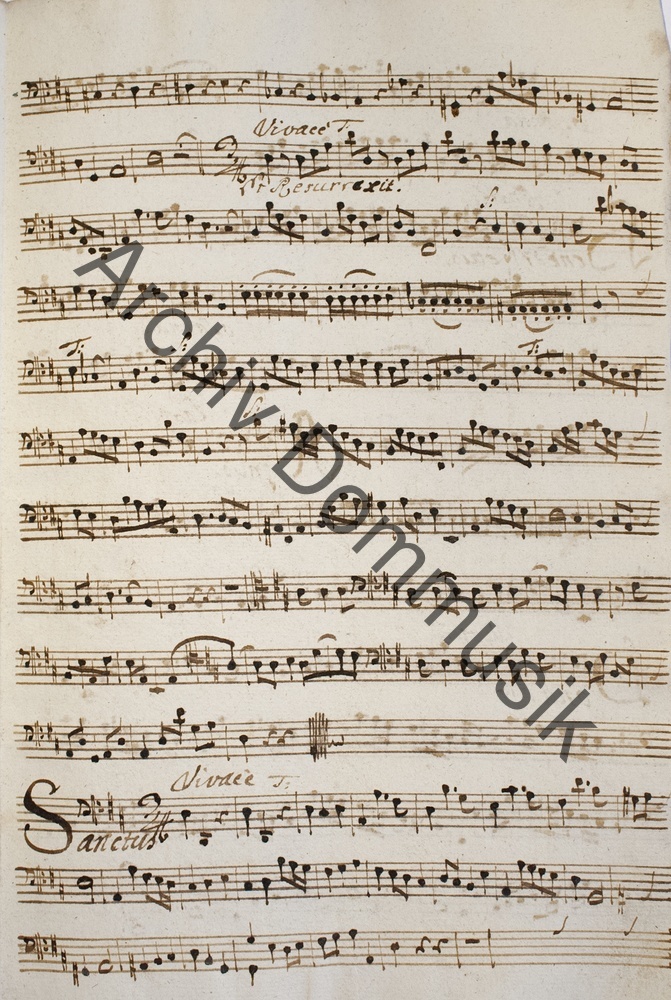 Vivace T.
Et Resurrexit.
S.
T. S. T.
S.
Vivace T.
Sanctus
Archiv Dommusik